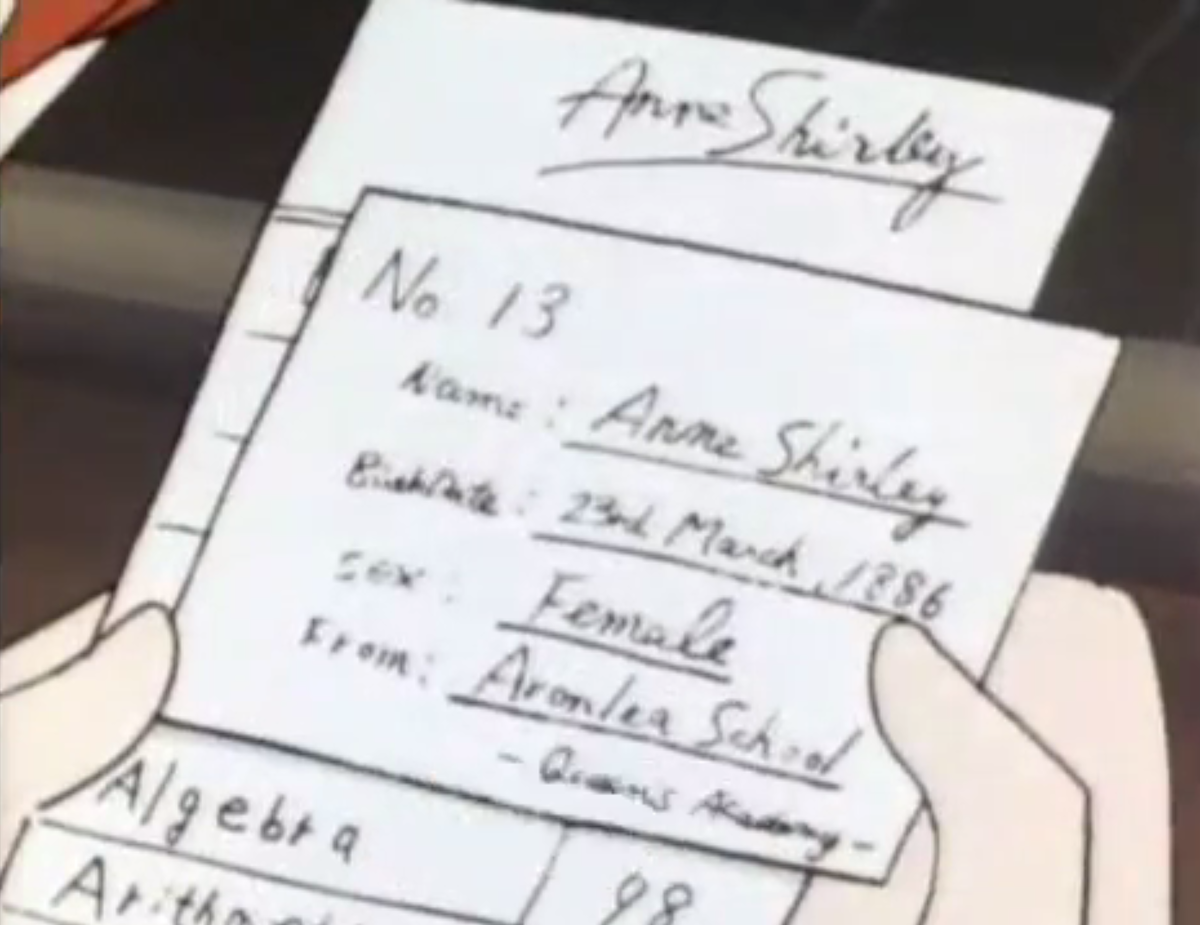 Anne Shirley
No. 13
Name: Anne Shirley
BirthDate: 23rd March, 1886
Sex: Female
From: Avonlea School
- Queens Academy -
Algebra 98